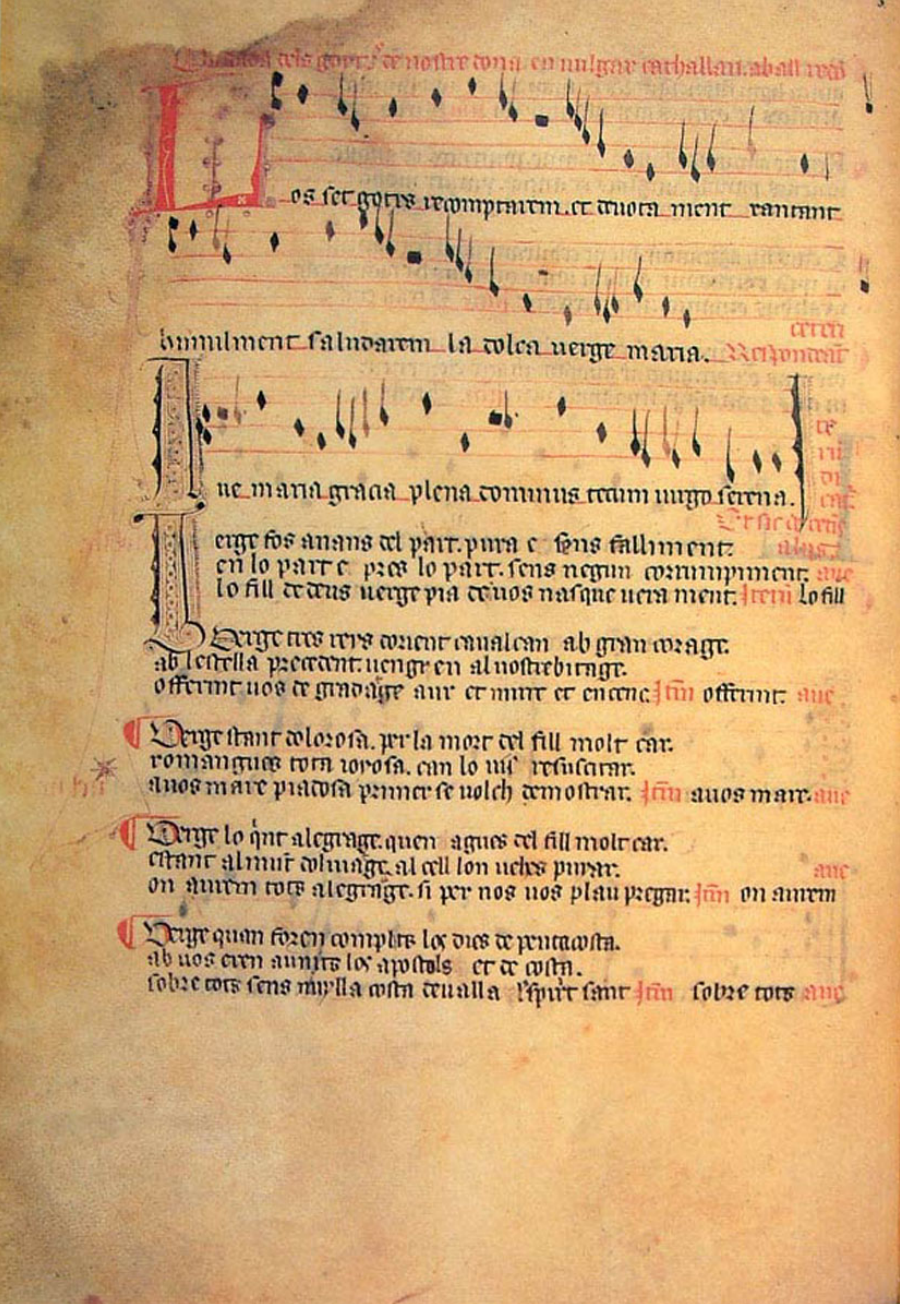 Ballada dels goytꝫ de nostre dona en vulgar cathallan. a ball redo
Los set gotxs recomptarem. et deuota ment xantant
humilment saludarem la dolca uerge maria.
ceteri
Respondeant
Aue maria gracia plena dominus tecum uirgo serena.
Verge fos anans del part. pura e sens falliment:
en lo part e pres lo part. sens negun corrumpiment. aue
lo fill de deus uerge pia de uos nasque uera ment. Item lo fill
Verge tres reys dorient caualcan ab gran corage.
ab lestella precedent. uengren al uostrebitage.
offerint uos de gradatge aur et mirre et encenc. Item offerint. aue
Verge stant dolorosa. per la mort del fill molt car.
romangues tota ioyosa. can lo uis resuscitar.
auos mare piadosa primer se uolch demostrar. Item auos mare. aue
Verge lo qint alegrage. quen agues del fill molt car.
estant al munt doliuatge. al cell lon uehes puyar.
aue
on aurem tots alegrage. si per nos uos plau pregar. Item on aurem
Verge quan foren complits los dies de pentacosta.
ab uos eren aunits los apostols et de costa.
sobre tots sens nuylla costa deualla lespirit sant Item sobre tots aue